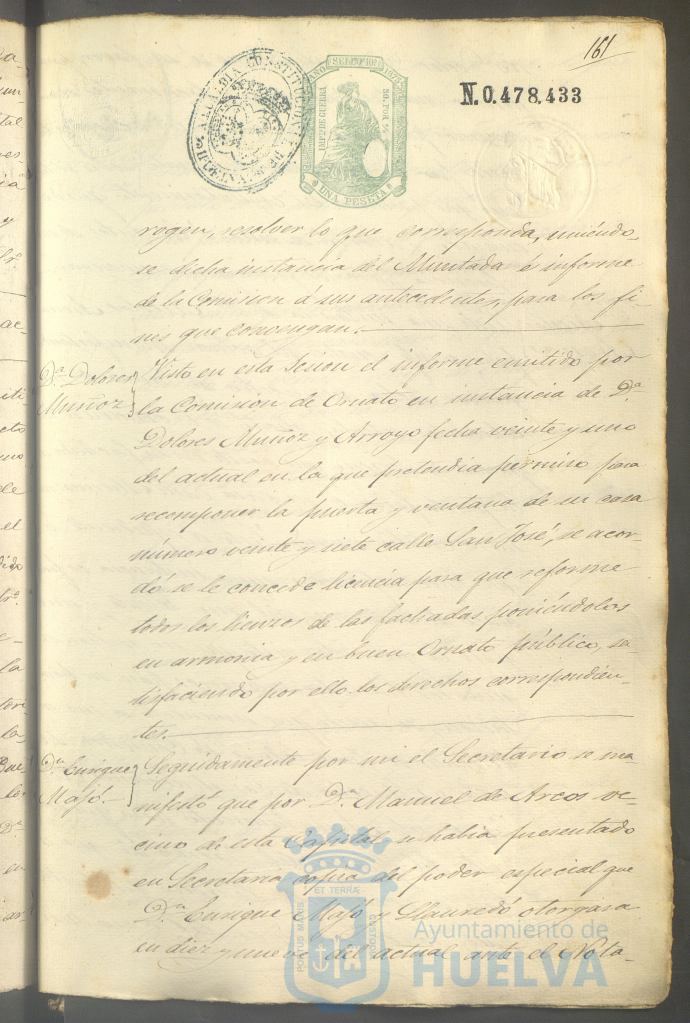 161
ALCALDIA CONSTITUCIONAL DE HUELVA
AÑO SELLO 10º 1877
IMPTO DE GUERRA
50 POR %
UNA PESETA
N.0.478.433
rogen, resolver lo que corresponda, uniéndo-
se dicha instancia del Muntada é informe
de la Comision á sus antecedentes, para los fi-
nes que convengan.
Dª Dolores
Muñoz
Visto en esta Sesion el informe emitido por
la Comision de Ornato en instancia de Dª
Dolores Muñoz y Arroyo fecha veinte y uno
del actual en la que pretendia permiso para
recomponer la puerta y ventana de su casa
número veinte y siete calle San José, se acor-
dó se le concede licencia para que reforme
todos los lienzos de las fachadas poniéndolos
en armonia y en buen Ornato público, sa-
tisfaciendo por ello los derechos correspondien-
tes.
Dn Enrique
Majó.
Seguidamente por mi el Secretario se ma-
nifestó que por Dn Manuel de Arcos ve-
cino de esta Capital se habia presentado
en Secretaria copia del poder especial que
Dn Enrique Majó y Llauredó otorgara
en diez y nueve del actual ante el Nota-
PORTUS MARIS
ET TERRÆ
CUSTODIA
Ayuntamiento de
HUELVA